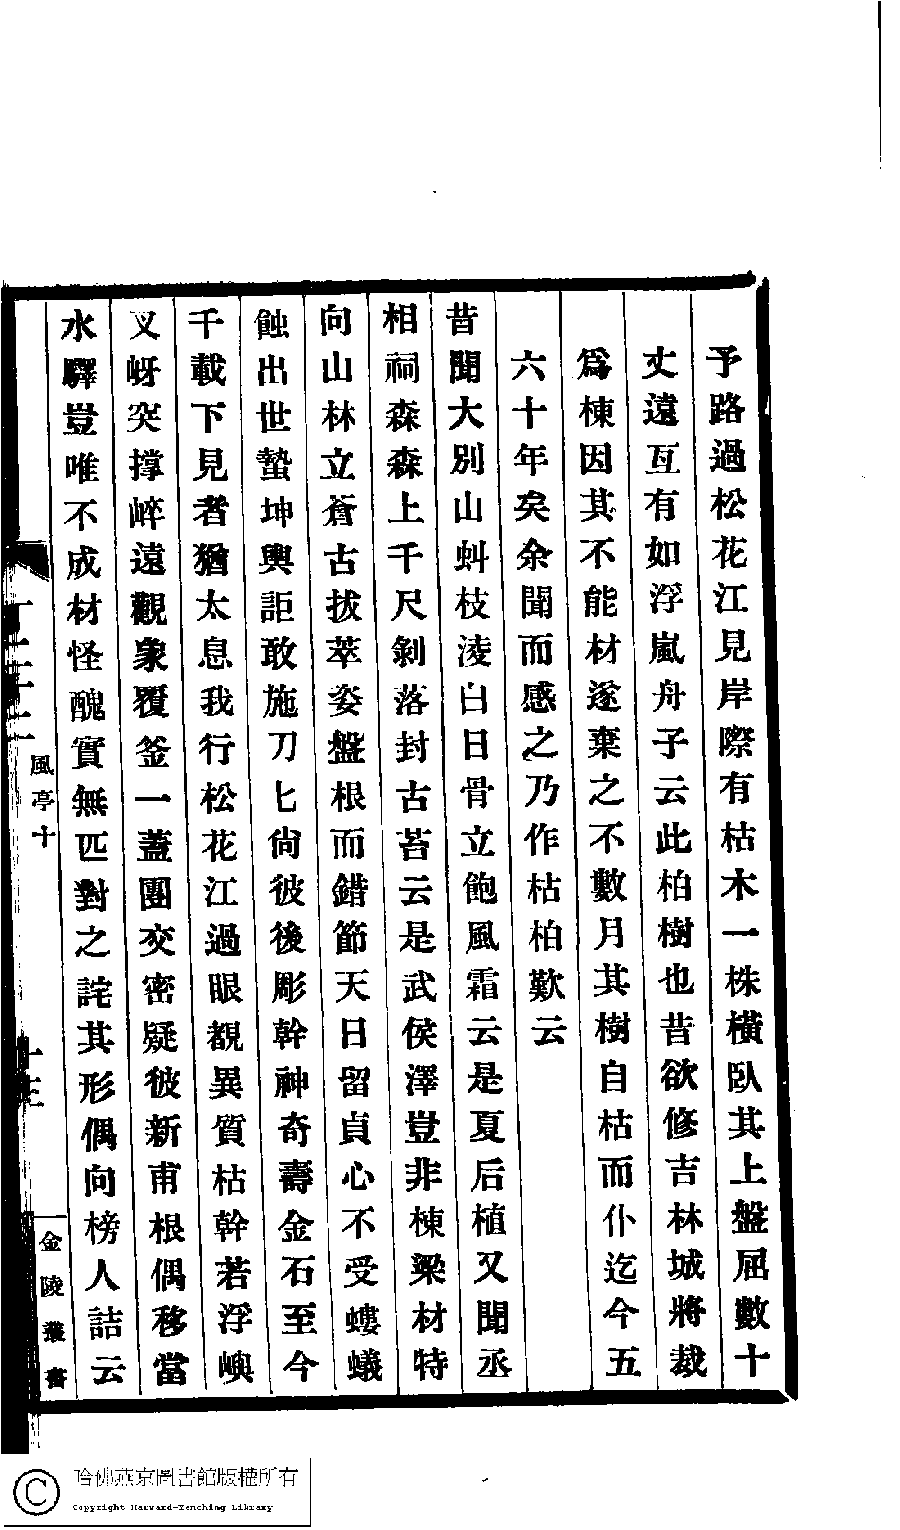 予路過松花江見岸際有枯木一株橫臥其上盤屈數十
丈遠亙有如浮嵐舟子云此柏樹也昔欲修吉林城將裁
爲棟因其不能材遂棄之不數月其樹自枯而仆迄今五
六十年矣余聞而感之乃作枯柏歎云
昔聞大別山蚪枝淩白日骨立飽風霜云是夏后植又聞丞
相祠森森上千尺剝落封古苔云是武侯澤豈非棟梁材特
向山林立蒼古拔萃姿盤根而錯節天日留貞心不受螻蟻
蝕出世蟄坤輿詎敢施刀匕尙彼後彫幹神奇壽金石至今
千載下見者猶太息我行松花江過眼覩異質枯幹若浮嶼
叉岈突撐崪遠觀象覆釜一蓋團交密疑彼新甫根偶移當
水驛豈唯不成材怪醜實無匹對之詫其形偶向榜人詰云
風亭十
金陵叢書
哈佛燕京圖書館版權所有
Copyright Harvard-Yenching Library